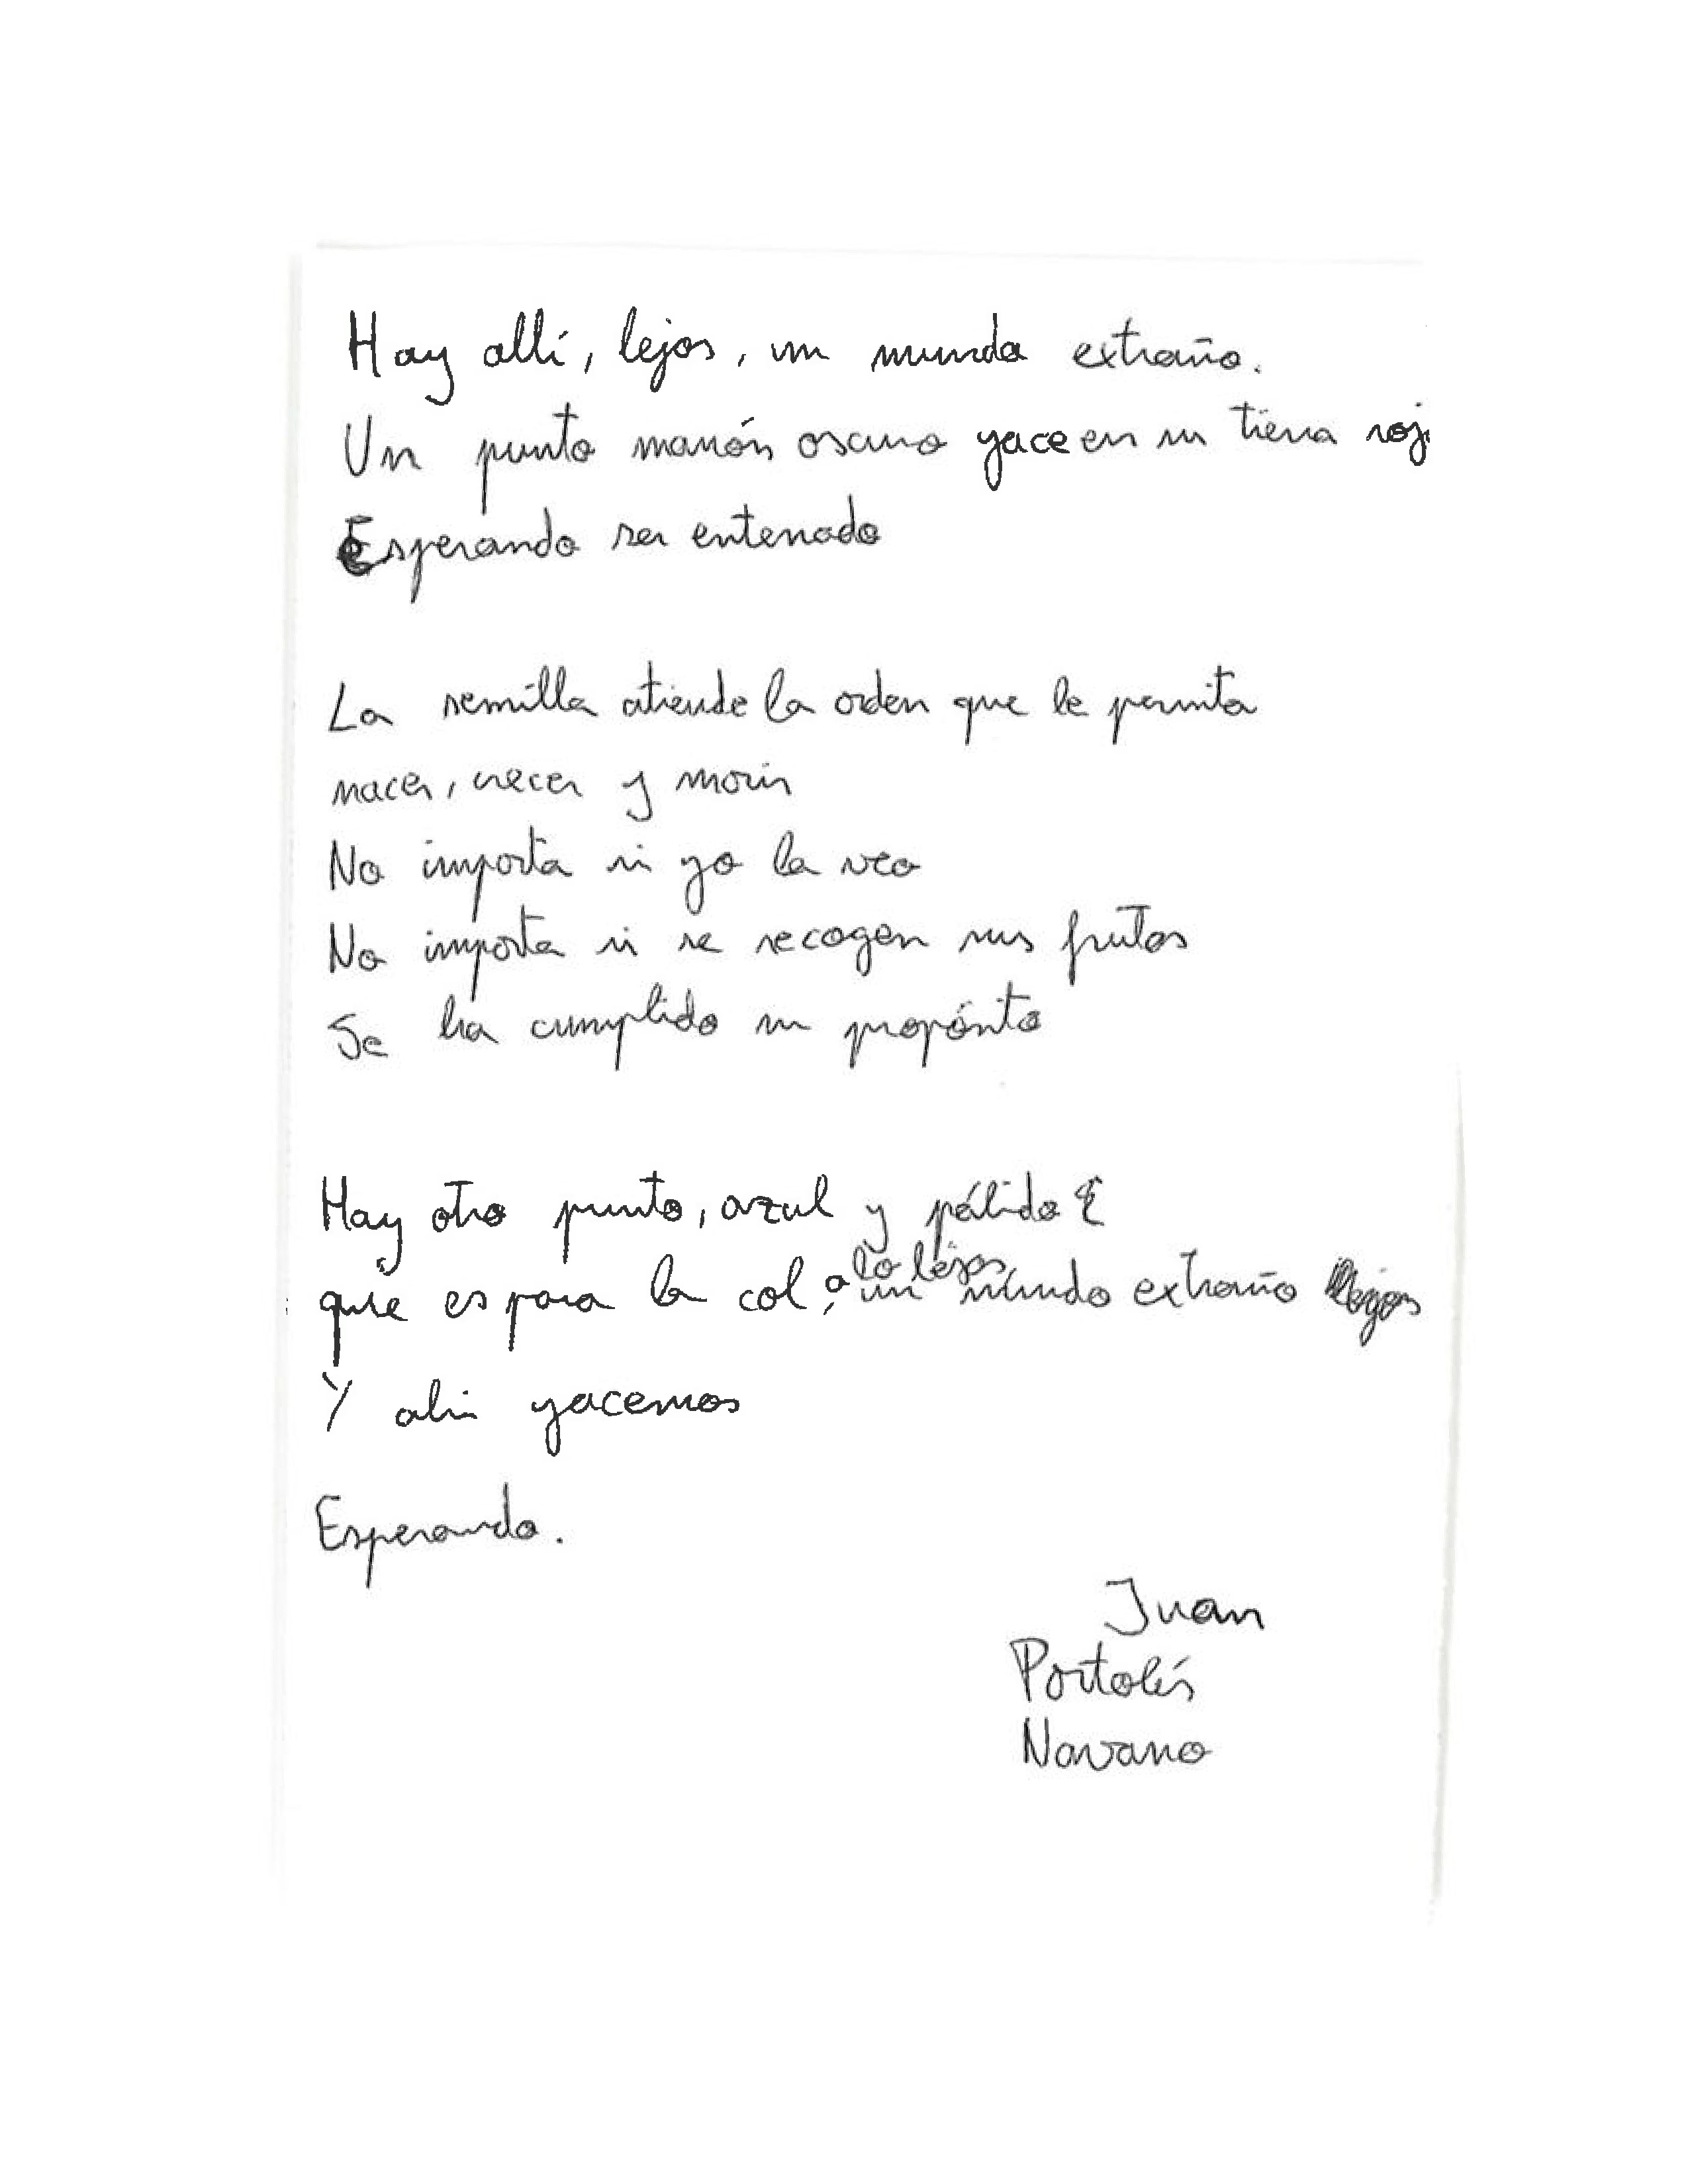 Hay allí, lejos, un mundo extraño.
Un punto marrón oscuro yace en su tierra roj
Esperando ser enterrado
La semilla atiende la orden que le permita
nacer, crecer y morir
No importa si yo la veo
No importa si se recogen sus frutos
Se ha cumplido su propósito
Hay otro punto, azul y pálido
que es para la col, a lo lejos, un mundo extraño
Y ahí yacemos
Esperando.
Juan
Portolés
Navarro